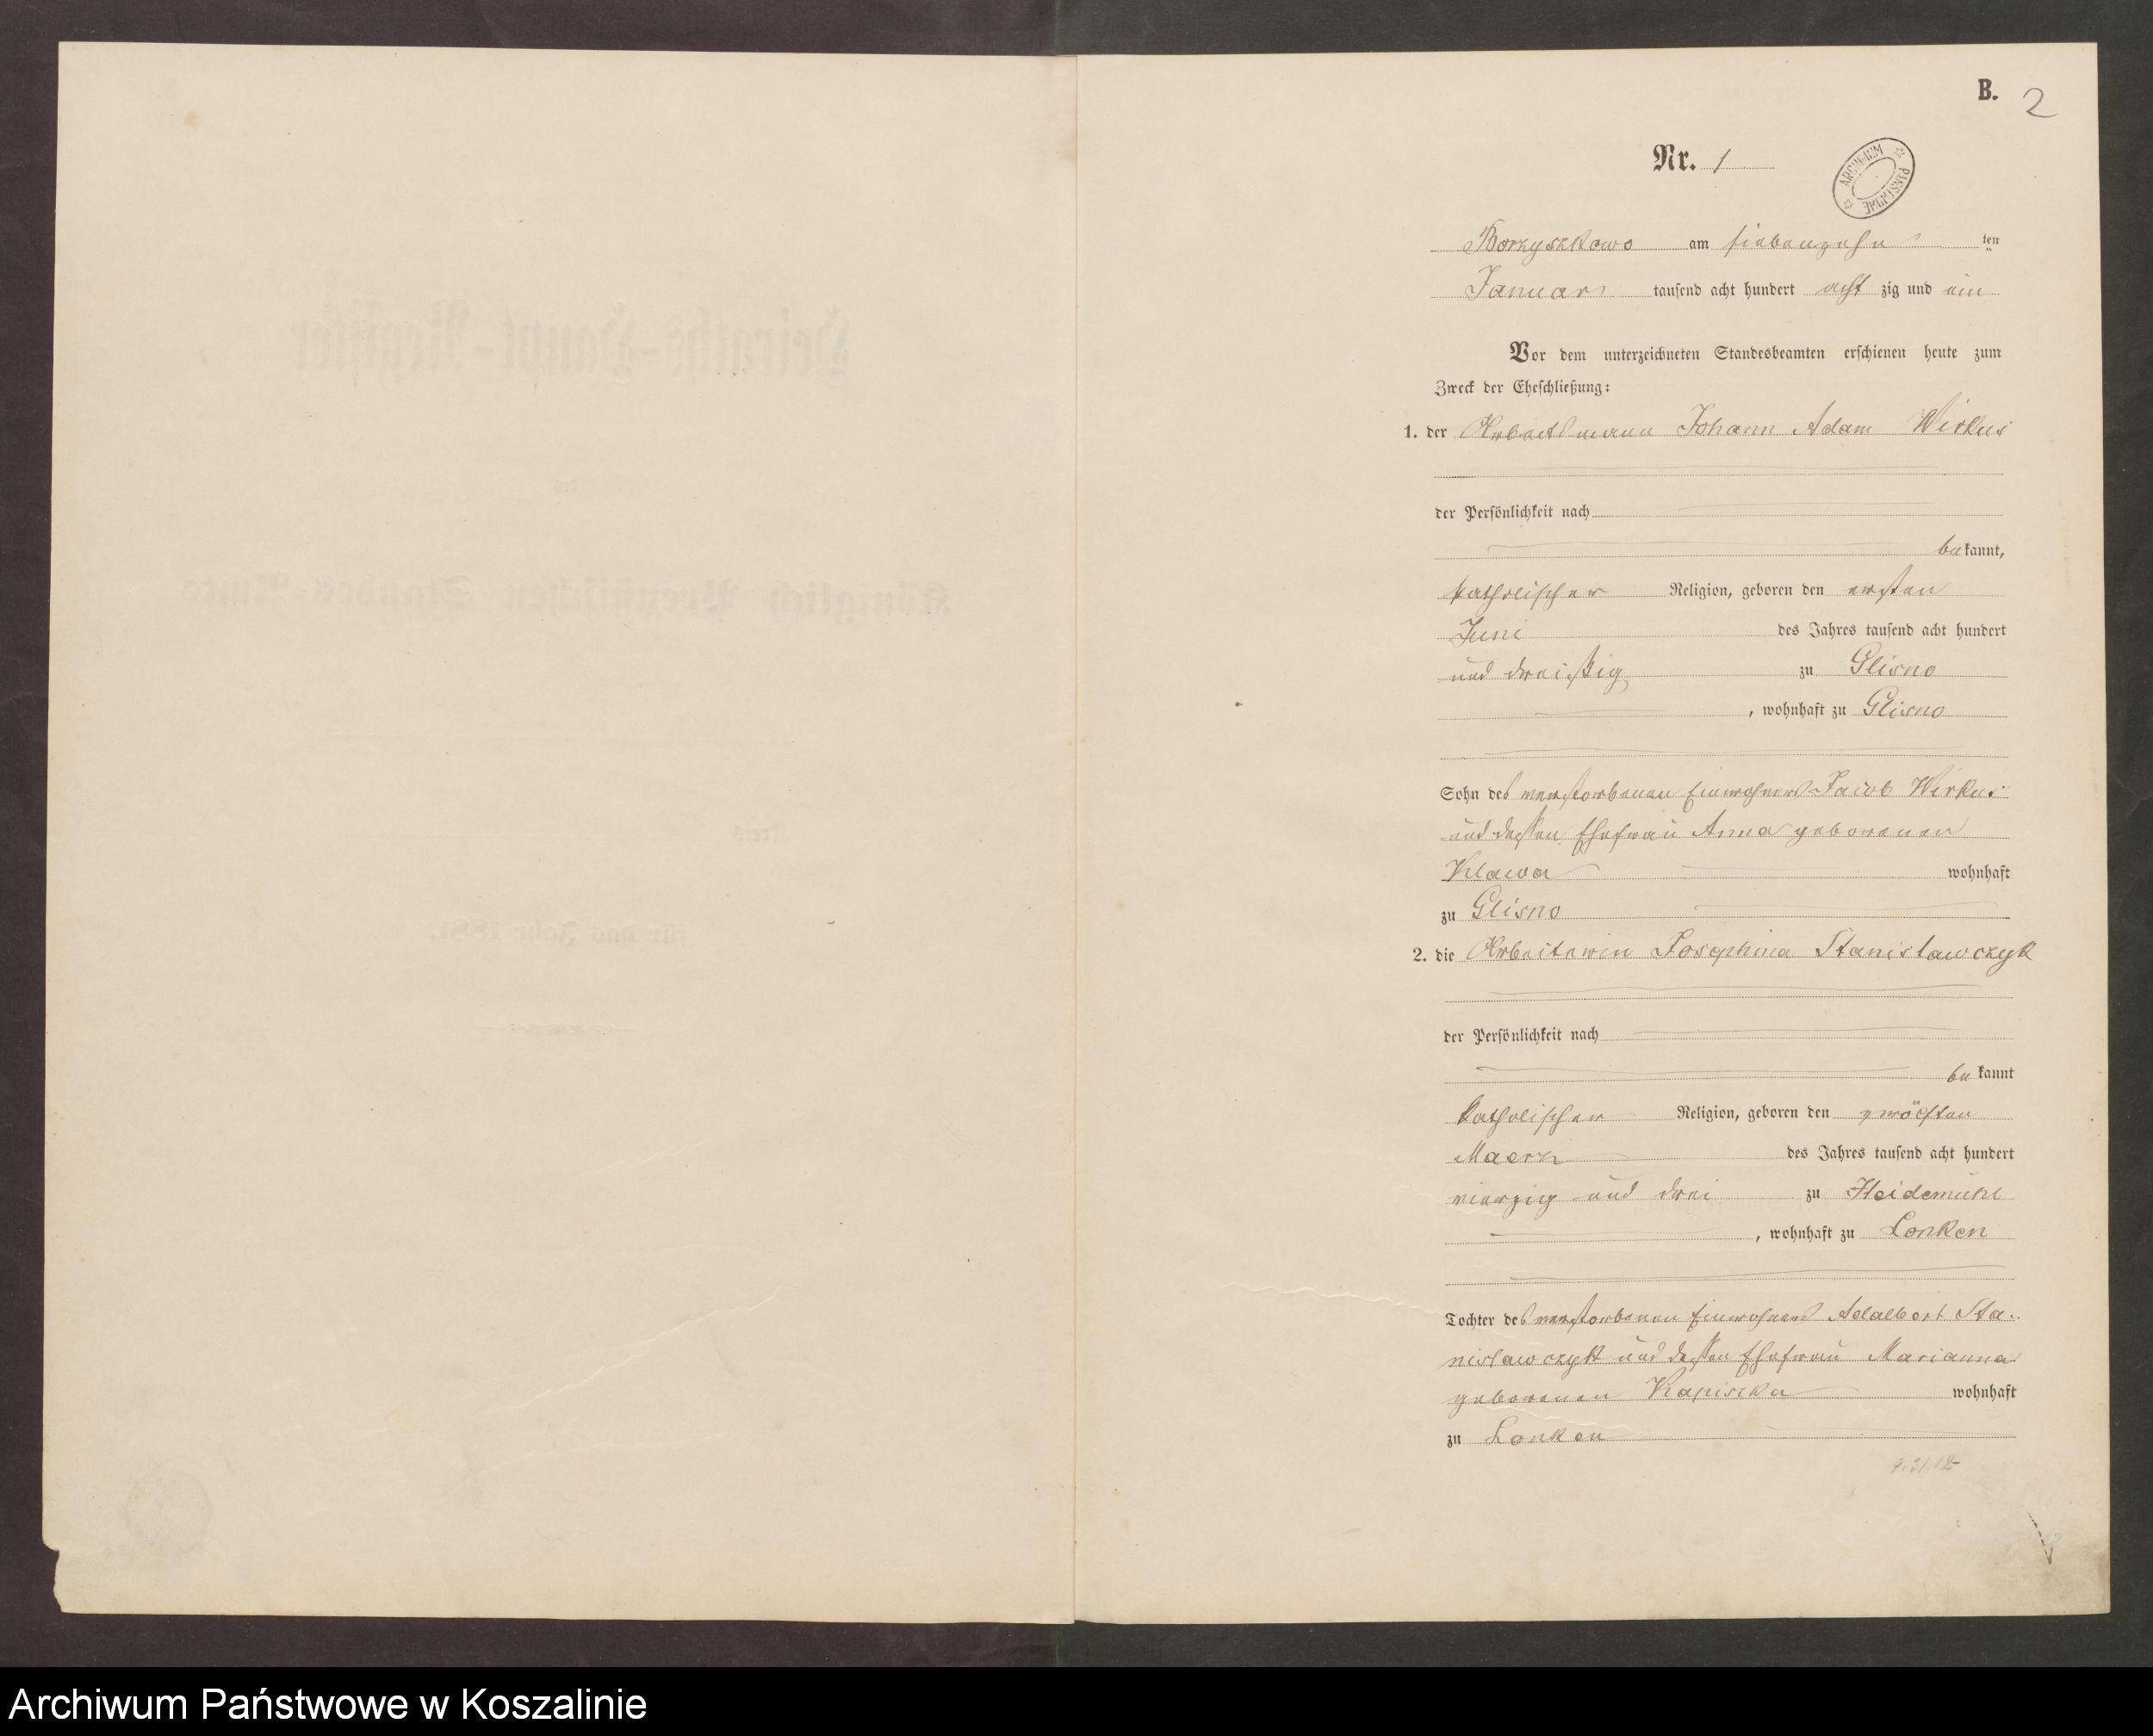 B. 2
Nr. 1
ARCHIWUM PAŃSTWOWE
Borzyszkowo am siebenzehn ten
Januar tausend acht hundert acht zig und ein
Vor dem unterzeichneten Standesbeamten erschienen heute zum
Zweck der Eheschließung:
1. der Arbeitsmann Johann Adam Wirkus
der Persönlichkeit nach
bekannt,
katholischer Religion, geboren den ersten
Juni des Jahres tausend acht hundert
und dreißig zu Glisno
, wohnhaft zu Glisno
Sohn des verstorbenen Einwohners Jacob Wirkus
und dessen Ehefrau Anna geborenen
Klawa wohnhaft
zu Glisno
2. die Arbeiterin Josephina Stanislawczyk
der Persönlichkeit nach
bekannt
katholischer Religion, geboren den zwölften
Maerz des Jahres tausend acht hundert
vierzig und drei zu Heidemühl
, wohnhaft zu Lonken
Tochter des verstorbenen Einwohners Adalbert Sta-
nislawczyk und dessen Ehefrau Marianna
geborenen wohnhaft
zu Lonken
Heiraths-Haupt-Register
des
Königlich Preußischen Standes-Amts
Kreis
für das Jahr 1881.
Archiwum Państwowe w Koszalinie